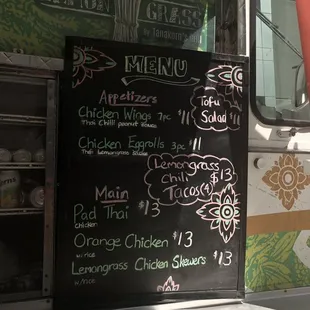 GRASS
by Tanakorn's
MENU
Appetizers
Chicken Wings 7pc $11
Thai Chili peanut sauce
Chicken Eggrolls 3pc $11
Thai Lemongrass
Tofu
Salad $11
Lemongrass
Chili $13
Tacos (4)
Main
Pad Thai $13
chicken
Orange Chicken $13
w/rice
Lemongrass Chicken Skewers $13
w/rice